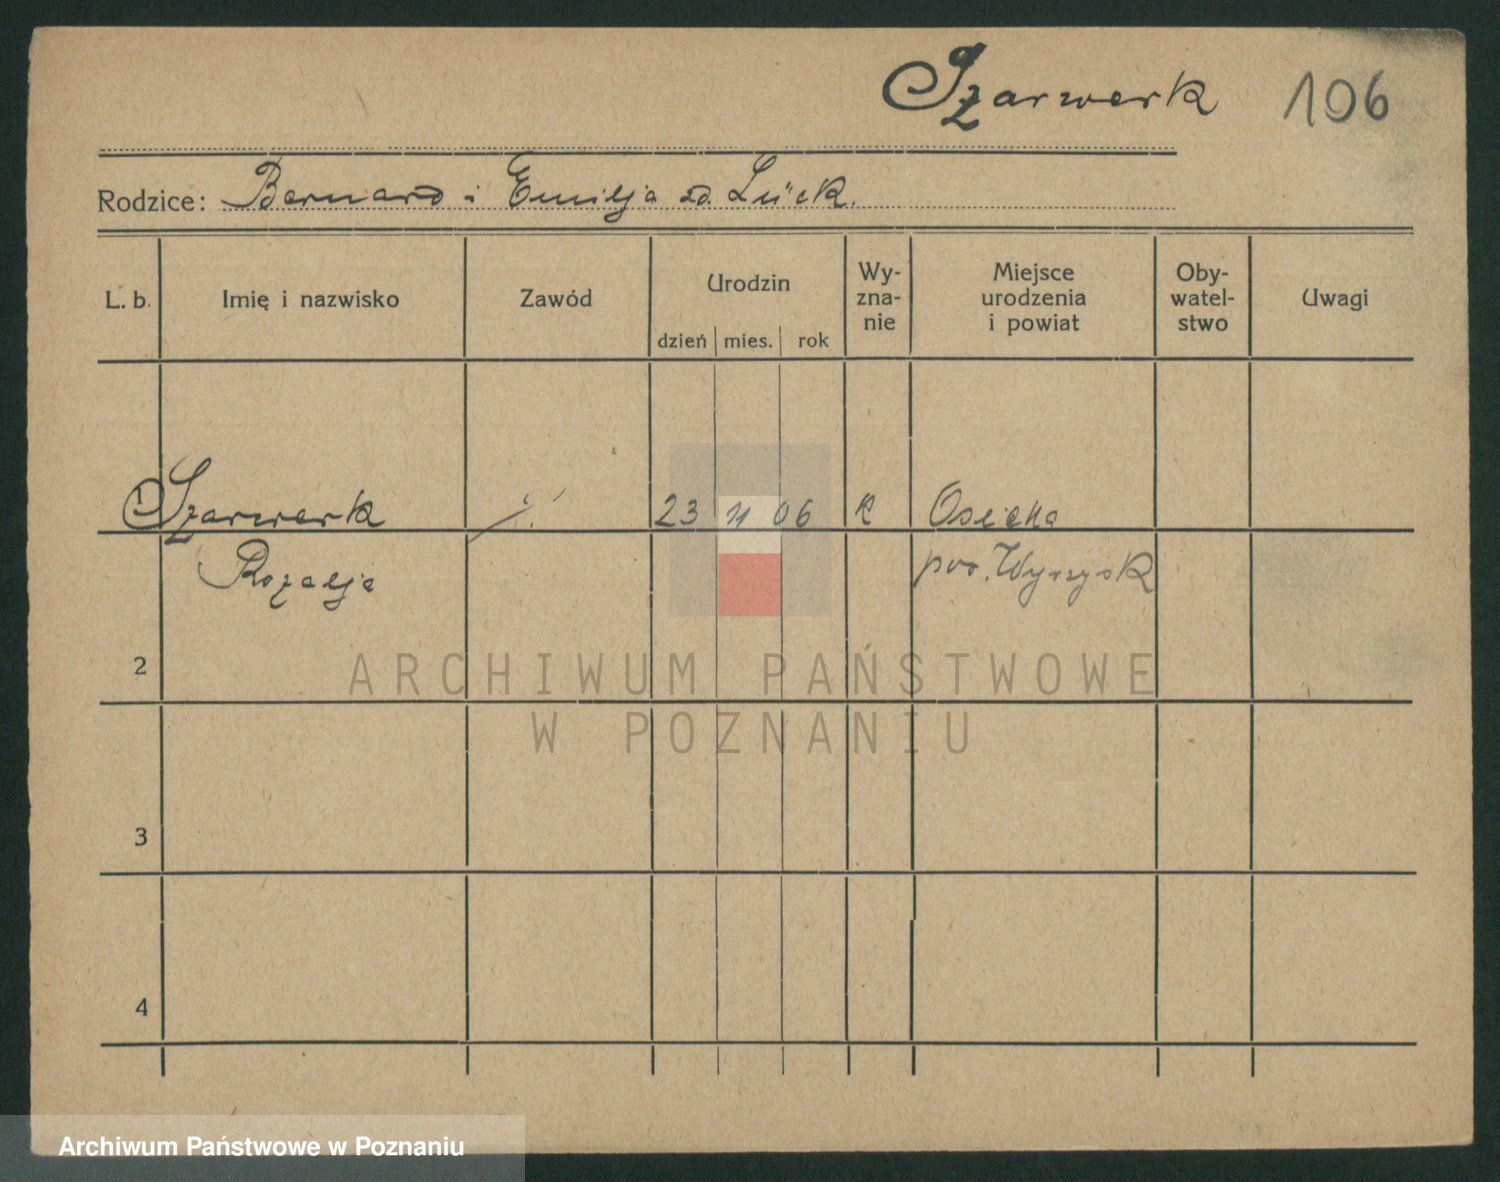 Szarwerk 106
Rodzice: Bernard i Emilja zd. Lück.
L. b. Imię i nazwisko Zawód Urodzin Wy-zna-nie Miejsce urodzenia i powiat Oby-watel-stwo Uwagi
dzień mies. rok
1 Szarwerk 23 06 k Osieka
Rozalja pow. Wyrzysk
2
ARCHIWUM PAŃSTWOWE
W POZNANIU
3
4
Archiwum Państwowe w Poznaniu